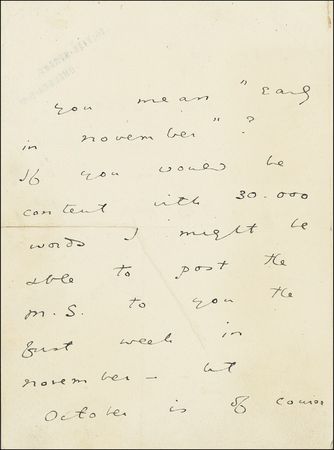 you mean "Early
in november"?
If you would be
content with 30.000
words I might be
able to post the
M.S. to you the
first week in
november — but
October is of course